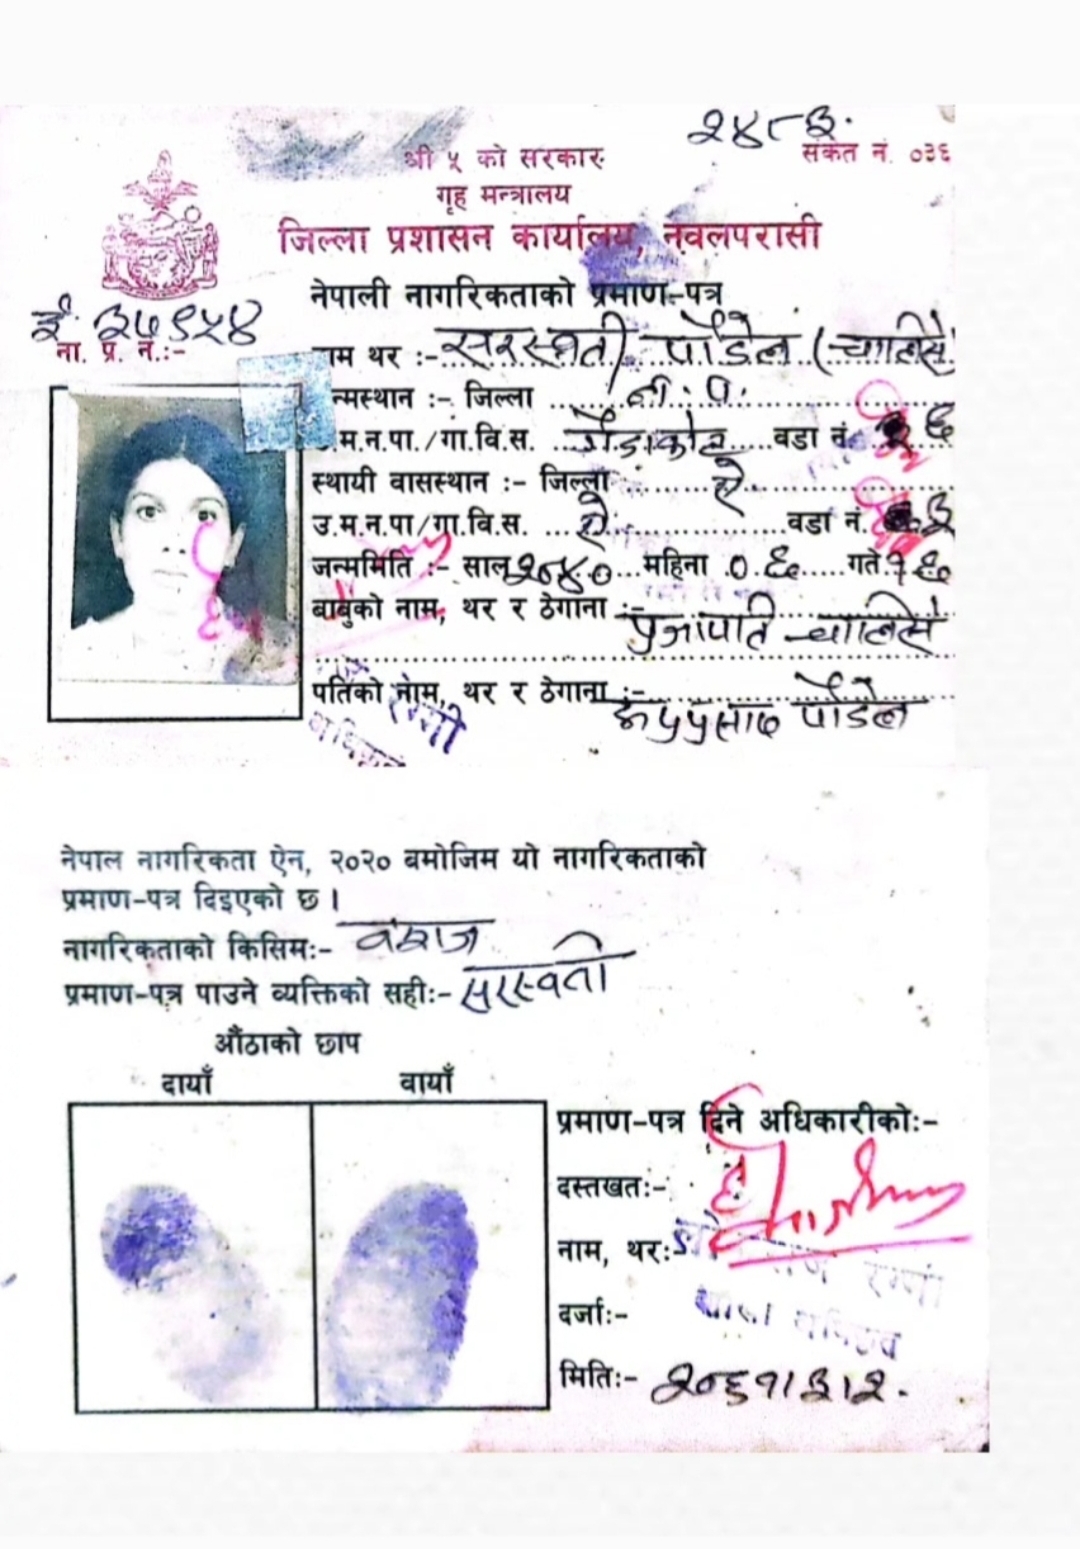 २४८३.
श्री ५ को सरकार
संकेत नं. ०३६
गृह मन्त्रालय
जिल्ला प्रशासन कार्यालय, नवलपरासी
नेपाली नागरिकताको प्रमाण-पत्र
ना. प्र. नं.:-
नाम थर :- सरस्वती पौडेल (चालिसे
जन्मस्थान :- जिल्ला न. प.
म.न.पा./गा.वि.स. गैंडाकोट वडा नं. ६
स्थायी वासस्थान :- जिल्ला ऐ
उ.म.न.पा/गा.वि.स. ऐ वडा नं. ३
जन्ममिति :- साल २०४० महिना ०६ गते १६
बाबुको नाम, थर र ठेगाना :- प्रजापति चालिसे
पतिको नाम, थर र ठेगाना :- पौडेल
नेपाल नागरिकता ऐन, २०२० बमोजिम यो नागरिकताको
प्रमाण-पत्र दिइएको छ ।
नागरिकताको किसिम:- वंशज
प्रमाण-पत्र पाउने व्यक्तिको सही:- सरस्वती
औंठाको छाप
दायाँ बायाँ
प्रमाण-पत्र दिने अधिकारीको:-
दस्तखत:-
नाम, थर:
दर्जा:-
मिति:- २०६१।३।२.